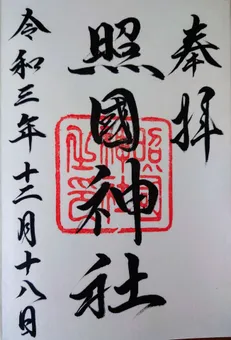 奉拝
照國神社
令和三年十二月十八日